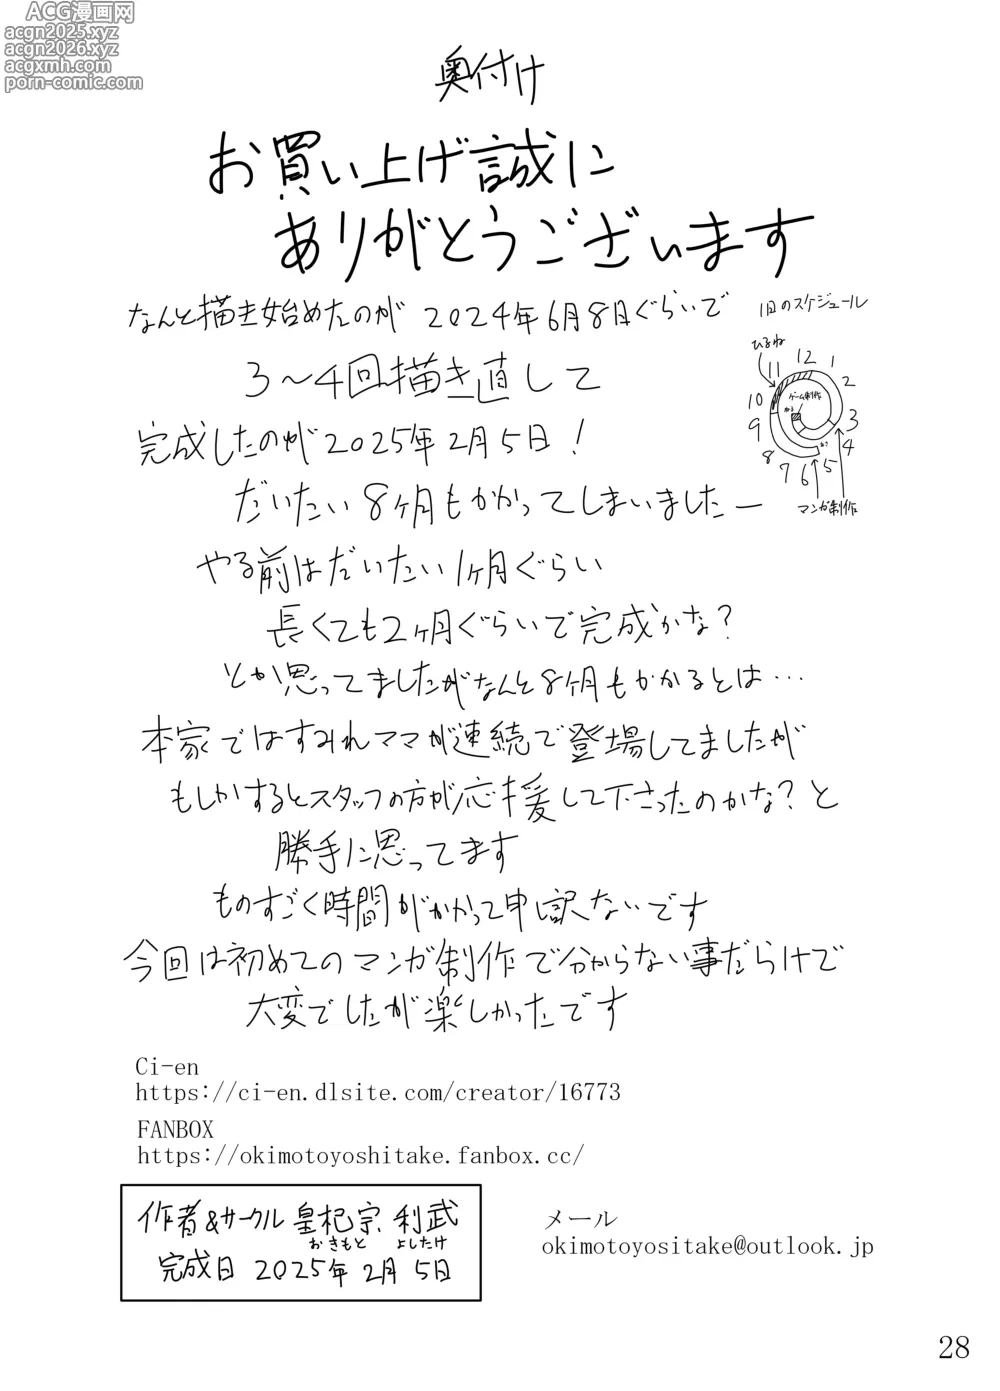 ACG漫画网
acgn2025.xyz
acgn2026.xyz
acgxmh.com
porn-comic.com
奥付け
お買い上げ誠に
ありがとうございます
なんと描き始めたのが 2024年6月8日ぐらいで
3〜4回描き直して
完成したのが2025年2月5日!
だいたい8ヶ月もかかってしまいましたー
やる前はだいたい1ヶ月ぐらい
長くても2ヶ月ぐらいで完成かな?
とか思ってましたがなんと8ヶ月もかかるとは…
本家ではすみれママが連続で登場してましたが
もしかするとスタッフの方が応援して下さったのかな?と
勝手に思ってます
ものすごく時間がかかって申し訳ないです
今回は初めてのマンガ制作で分からない事だらけで
大変でしたが楽しかったです
1日のスケジュール
ひるね
12
1
2
3
4
5
6
7
8
9
10
11
ゲーム制作
マンガ制作
Ci-en
https://ci-en.dlsite.com/creator/16773
FANBOX
https://okimotoyoshitake.fanbox.cc/
作者&サークル 皇杞宗 利武
おきもと よしたけ
完成日 2025年2月5日
メール
okimotoyositake@outlook.jp
28